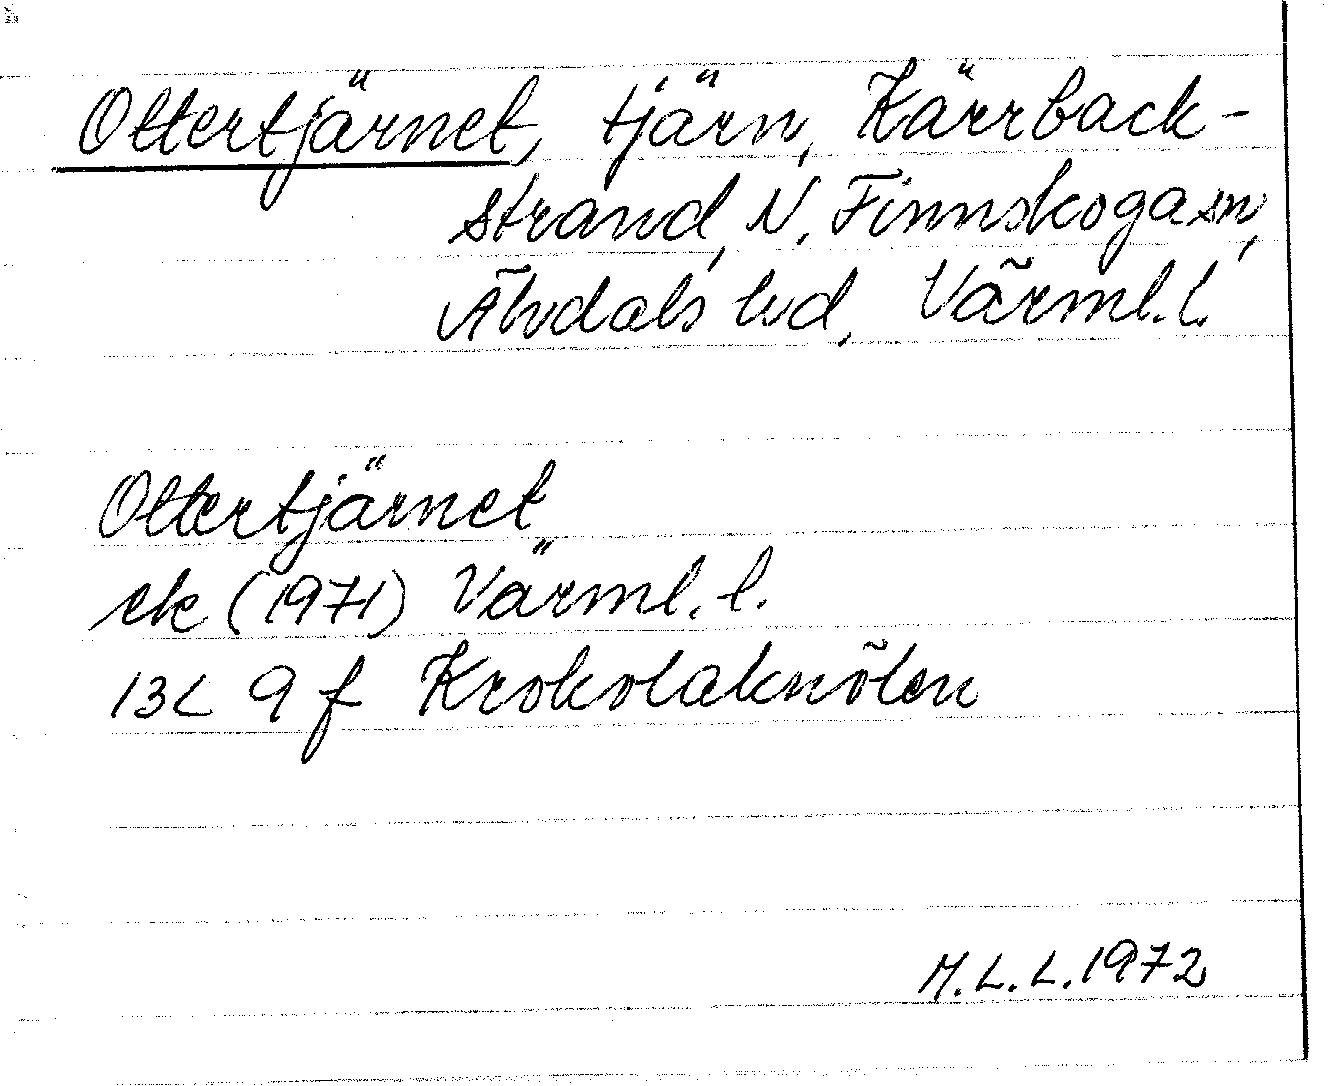 Ottertjärnet, tjärn, Kärrback-
strand, N. Finnskoga sn,
Älvdals hd, Värml. l.
Ottertjärnet
ek (1971) Värml. l.
13C 9 f Krokolaknölen
M.L.L. 1972